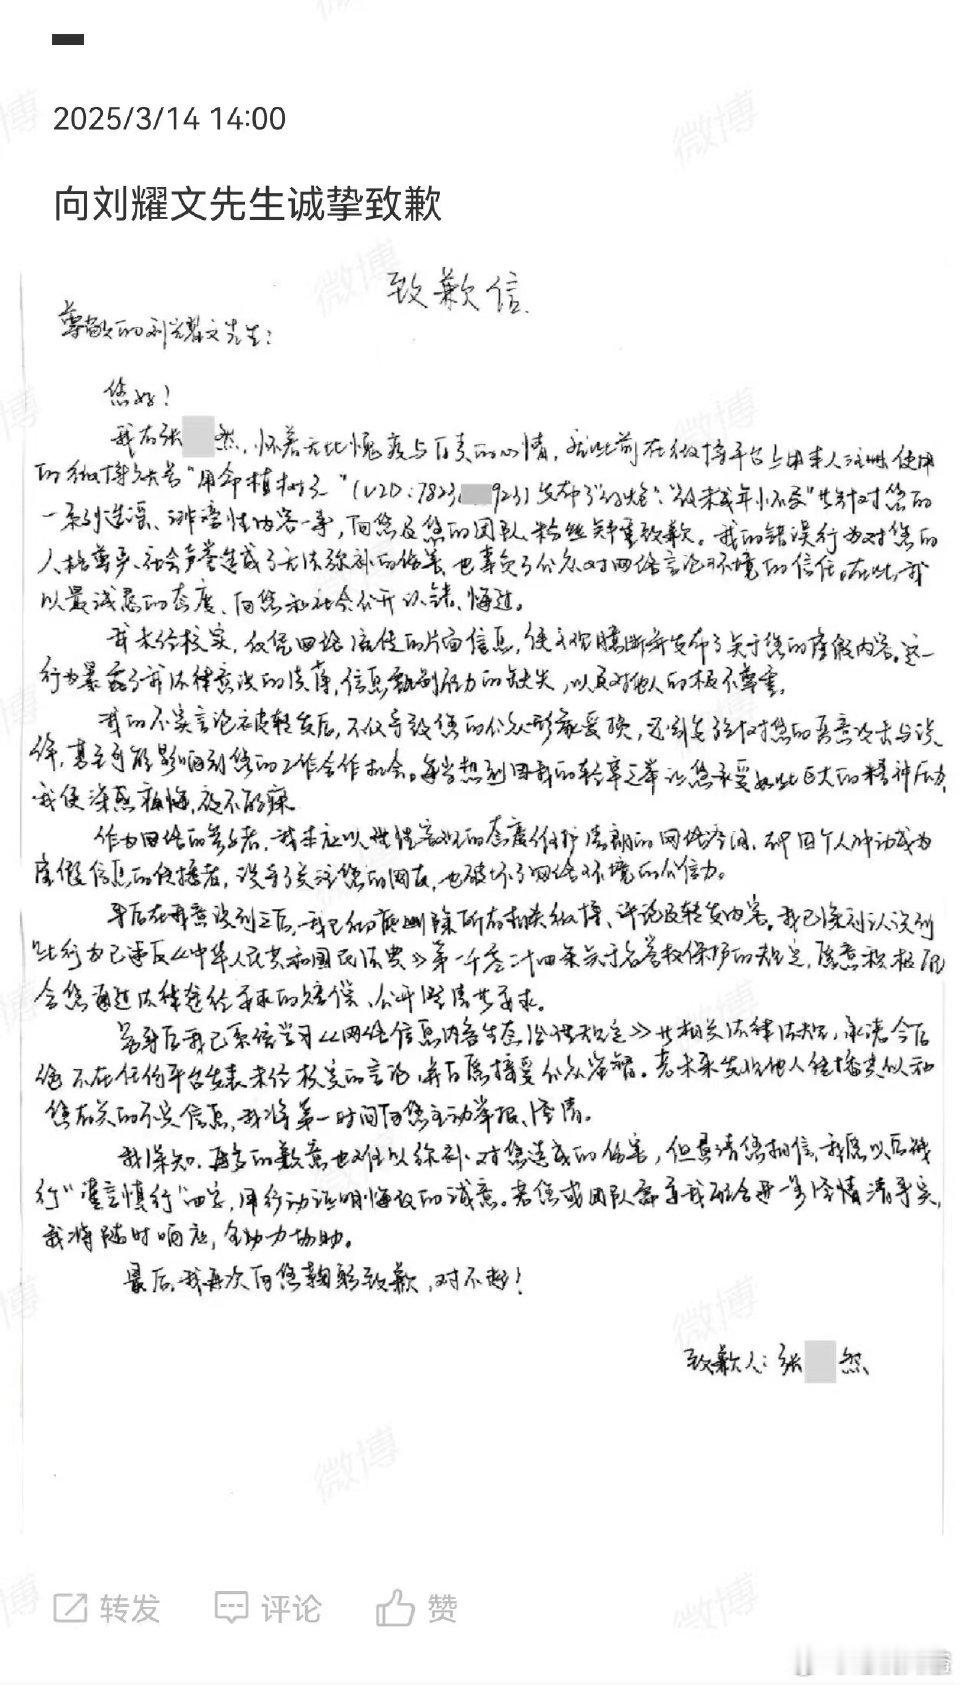 2025/3/14 14:00
向刘耀文先生诚挚致歉
致歉信
尊敬的刘耀文先生：
您好！
我为张 然，怀着无比愧疚与自责的心情，就此前在微博平台上用本人注册使用
的微博账号"用命植树" (UID:7823 923)发布了 "致未成年怀孕"共针对您的
一系列造谣、诽谤性内容一事，向您及您的团队、粉丝郑重致歉。我的错误行为对您的
人格尊严、社会声誉造成了无法弥补的伤害，也辜负了公众对网络言论环境的信任。在此，我
以最诚恳的态度、向您和社会公开认错、悔过。
我未经核实，仅凭网络流传的片面信息，便主观臆断并发布了关于您的虚假内容。这一
行为暴露了我法律意识的淡薄，信息甄别能力的缺失，以及对他人的极不尊重。
我的不实言论被转发后，不仅导致您的公众形象受损，还引发了针对您的恶意攻击与误
解，甚至可能影响到您的工作合作机会。每当想到因我的轻率之举让您承受如此巨大的精神压力，
我便深感痛悔，夜不能寐
作为网络的参与者，我本应以理性客观的态度维护清朗的网络空间，却因个人冲动成为
虚假信息的传播者，误导了关注您的网友，也破坏了网络环境的公信力。
事后在我意识到之后，我已彻底删除所有相关微博、评论及转发内容。我已深刻认识到
此行为已违反《中华人民共和国民法典》第一千零二十四条关于名誉权保护的规定，愿意积极配
合您通过法律途径寻求的赔偿，公开澄清等要求。
另事后我已系统学习《网络信息内容生态治理规定》等相关法律法规，承诺今后
绝不在任何平台发表未经核实的言论，并自愿接受公众监督。若未来发现他人传播类似和
您有关的不实信息，我将第一时间向您主动举报、澄清。
我深知，再多的歉意也难以弥补对您造成的伤害，但恳请您相信，我愿以后践
行"谨言慎行"四字，用行动证明悔改的诚意。若您或团队需要我配合进一步澄清事实，
我将随时响应，全力协助。
最后，我再次向您鞠躬致歉，对不起！
致歉人：张 然
转发 评论 赞
微博